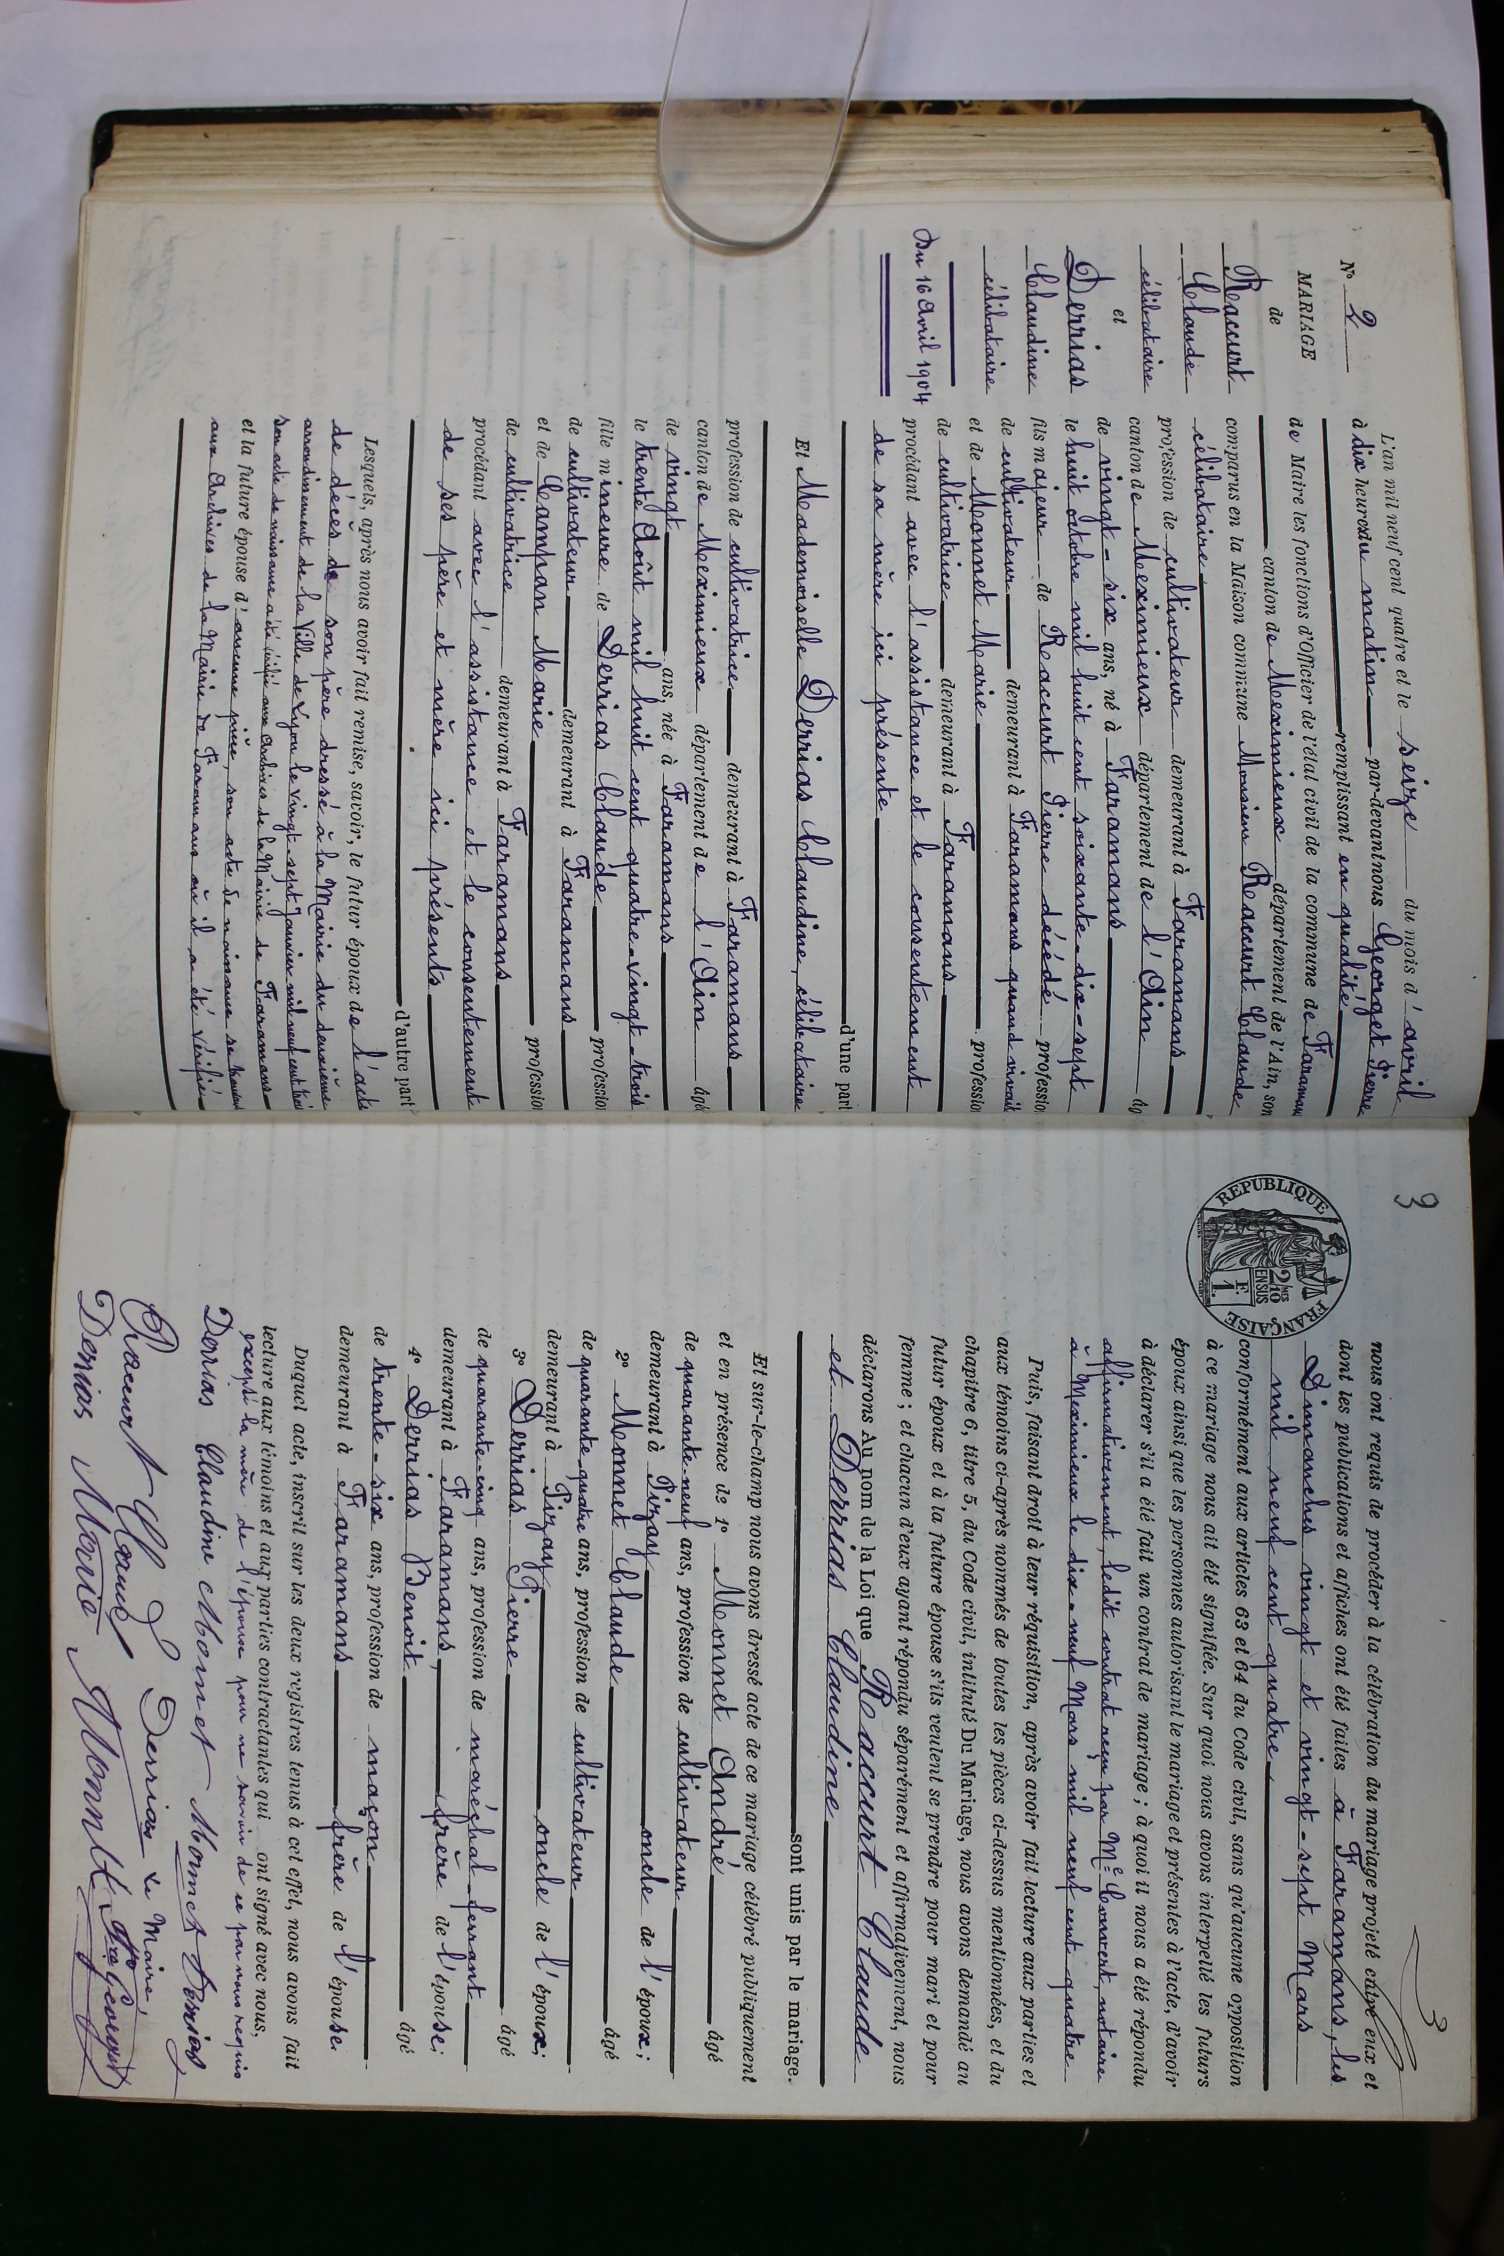 Nº 2
MARIAGE
de
Raccurt
Claude
célibataire
et
Derrias
Claudine
célibataire
Du 16 Avril 1904
L'an mil neuf cent quatre et le seize du mois d'avril
à dix heures du matin par-devant nous Georget Pierre
remplissant en qualité
de Maire les fonctions d'Officier de l'état civil de la commune de Faramans
canton de Meximieux département de l'Ain, son
comparus en la Maison commune Monsieur Raccurt Claude
célibataire
profession de cultivateur demeurant à Faramans
canton de Meximieux département de l'Ain âg
de vingt-six ans, né à Faramans
le huit octobre mil huit cent soixante-dix-sept
fils majeur de Raccurt Pierre décédé profession
de cultivateur demeurant à Faramans quand vivait
et de Monnet Marie profession
de cultivatrice demeurant à Faramans
procédant avec l'assistance et le consentement
de sa mère ici présente
d'une part
Et Mademoiselle Derrias Claudine, célibataire
profession de cultivatrice demeurant à Faramans
canton de Meximieux département de l'Ain âgé
de vingt ans, née à Faramans
le trente Août mil huit cent quatre-vingt-trois
fille mineure de Derrias Claude profession
de cultivateur demeurant à Faramans
et de Campan Marie profession
de cultivatrice demeurant à Faramans
procédant avec l'assistance et le consentement
de ses père et mère ici présents
d'autre part
Lesquels, après nous avoir fait remise, savoir, le futur époux de l'acte
de décès de son père dressé à la Mairie du deuxième
arrondissement de la Ville de Lyon le vingt sept Janvier mil neuf cent trois
son acte de naissance a été vérifié aux archives de la Mairie de Faramans
et la future épouse d'aucune pièce, son acte de naissance se trouvant
aux Archives de la Mairie de Faramans où il a été vérifié
3
3
RÉPUBLIQUE FRANÇAISE
2/10 EN SUS
F.
1.
nous ont requis de procéder à la célébration du mariage projeté entre eux et
dont les publications et affiches ont été faites à Faramans, les
Dimanches vingt et vingt-sept Mars
mil neuf cent quatre,
conformément aux articles 63 et 64 du Code civil, sans qu'aucune opposition
à ce mariage nous ait été signifiée. Sur quoi nous avons interpellé les futurs
époux ainsi que les personnes autorisant le mariage et présentes à l'acte, d'avoir
à déclarer s'il a été fait un contrat de mariage ; à quoi il nous a été répondu
affirmativement, ledit contrat reçu par Me Convert, notaire
à Meximieux le dix-neuf Mars mil neuf cent quatre
Puis, faisant droit à leur réquisition, après avoir fait lecture aux parties et
aux témoins ci-après nommés de toutes les pièces ci-dessus mentionnées, et du
chapitre 6, titre 5, du Code civil, intitulé Du Mariage, nous avons demandé au
futur époux et à la future épouse s'ils veulent se prendre pour mari et pour
femme ; et chacun d'eux ayant répondu séparément et affirmativement, nous
déclarons Au nom de la Loi que Raccurt Claude
et Derrias Claudine
sont unis par le mariage.
Et sur-le-champ nous avons dressé acte de ce mariage célébré publiquement
et en présence de 1º Monnet André âgé
de quarante-neuf ans, profession de cultivateur
demeurant à Pizay oncle de l'époux ;
2º Monnet Claude âgé
de quarante-quatre ans, profession de cultivateur
demeurant à Pizay oncle de l'époux ;
3º Derrias Pierre âgé
de quarante-cinq ans, profession de maréchal-ferrant
demeurant à Faramans, frère de l'épouse ;
4º Derrias Benoit âgé
de trente-six ans, profession de maçon
demeurant à Faramans frère de l'épouse.
Duquel acte, inscrit sur les deux registres tenus à cet effet, nous avons fait
lecture aux témoins et aux parties contractantes qui ont signé avec nous,
excepté la mère de l'épouse pour ne savoir de ce par nous requis
Derrias Claudine Monnet Monnet Derrias
Raccurt Claude Derrias Le Maire,
Derrias Monnet